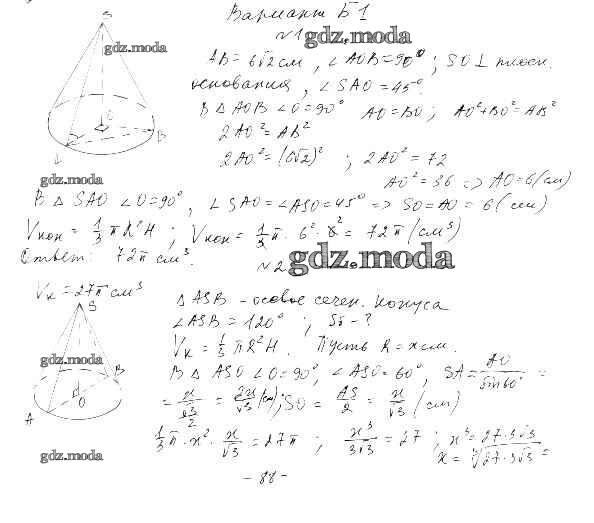 Вариант Б1
№1 gdz.moda
S
gdz.moda
AB = 6√2 см, ∠AOB = 90°; SO ⊥ плоск.
основания, ∠SAO = 45°.
В △ AOB ∠O = 90° AO = BO; AO² + BO² = AB²
2AO² = AB²
2AO² = (6√2)²; 2AO² = 72
AO² = 36 => AO = 6 (см)
O
B
A
gdz.moda
В △ SAO ∠O = 90°, ∠SAO = ∠ASO = 45° => SO = AO = 6 (см)
Vкон = 1/3 πR²H; Vкон = 1/3 π · 6² · 6 = 72π (см³)
Ответ: 72π см³.
№2 gdz.moda
Vк = 27π см³
S
△ ASB - осевое сечен. конуса
∠ASB = 120°; Sб - ?
Vк = 1/3 πR²H. Пусть R = x см.
gdz.moda
В △ ASO ∠O = 90°, ∠ASO = 60°, SA = AO/sin60° =
= x/(√3/2) = 2x/√3 (см); SO = AS/2 = x/√3 (см)
B
O
A
1/3 π · x² · x/√3 = 27π; x³/3√3 = 27; x³ = 27·3√3
x = ³√27·3√3 =
gdz.moda
- 88 -